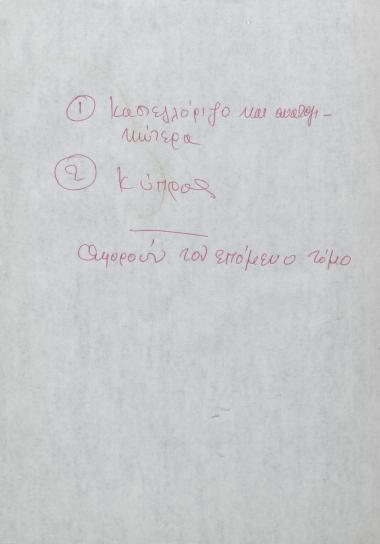 ① Καστελλόριζο και ανατολι-
κώτερα
② Κύπρος
Αφορούν τον επόμενο τόμο